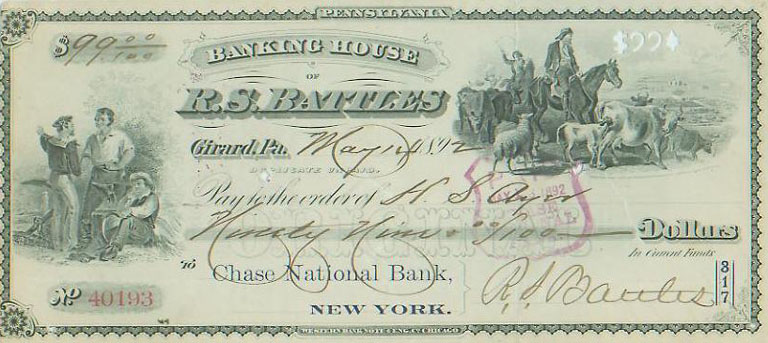 PENNSYLVANIA
$99 00/100
$99$
BANKING HOUSE
OF
R.S. BATTLES
Girard, Pa. May 1892
DUPLICATE UNPAID.
Pay to the order of H S Ayer
Ninety Nine 00/100 Dollars
1892
In Current Funds
To Chase National Bank,
NEW YORK.
R. S. Battles
317
No 40193
WESTERN BANK NOTE & ENG. CO. CHICAGO